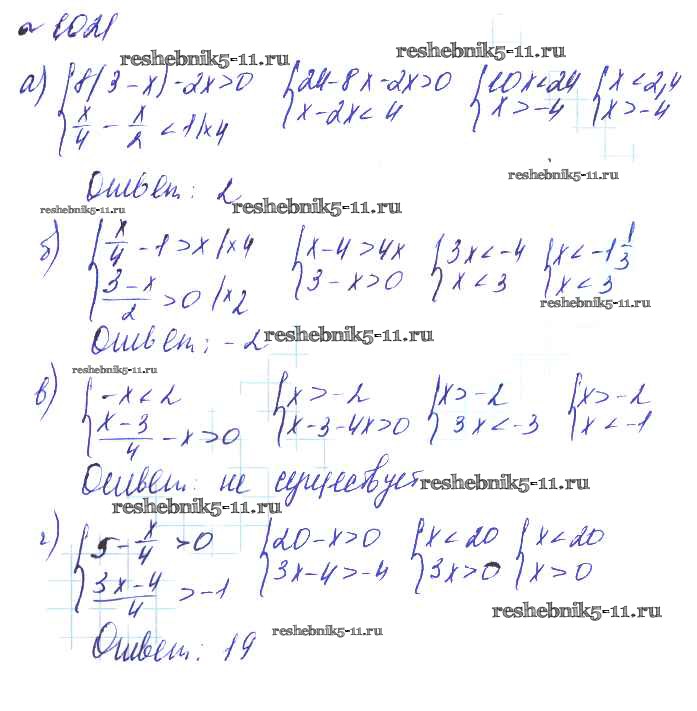 № 1021
reshebnik5-11.ru reshebnik5-11.ru
а) { 8(3-x)-2x>0 { 24-8x-2x>0 { 10x<24 { x<2,4
x/4 - x/2 < 1 |x4 x-2x<4 x>-4 x>-4
reshebnik5-11.ru
Ответ: 2
reshebnik5-11.ru reshebnik5-11.ru
б) { x/4 - 1 > x |x4 { x-4>4x { 3x<-4 { x<-1 1/3
(3-x)/2 > 0 |x2 3-x>0 x<3 x<3
reshebnik5-11.ru
Ответ: -2 reshebnik5-11.ru
reshebnik5-11.ru
в) { -x<2 { x>-2 { x>-2 { x>-2
(x-3)/4 - x>0 x-3-4x>0 3x<-3 x<-1
Ответ: не существует reshebnik5-11.ru
reshebnik5-11.ru
г) { 5 - x/4 >0 { 20-x>0 { x<20 { x<20
(3x-4)/4 >-1 3x-4>-4 3x>0 x>0
reshebnik5-11.ru
Ответ: 19 reshebnik5-11.ru